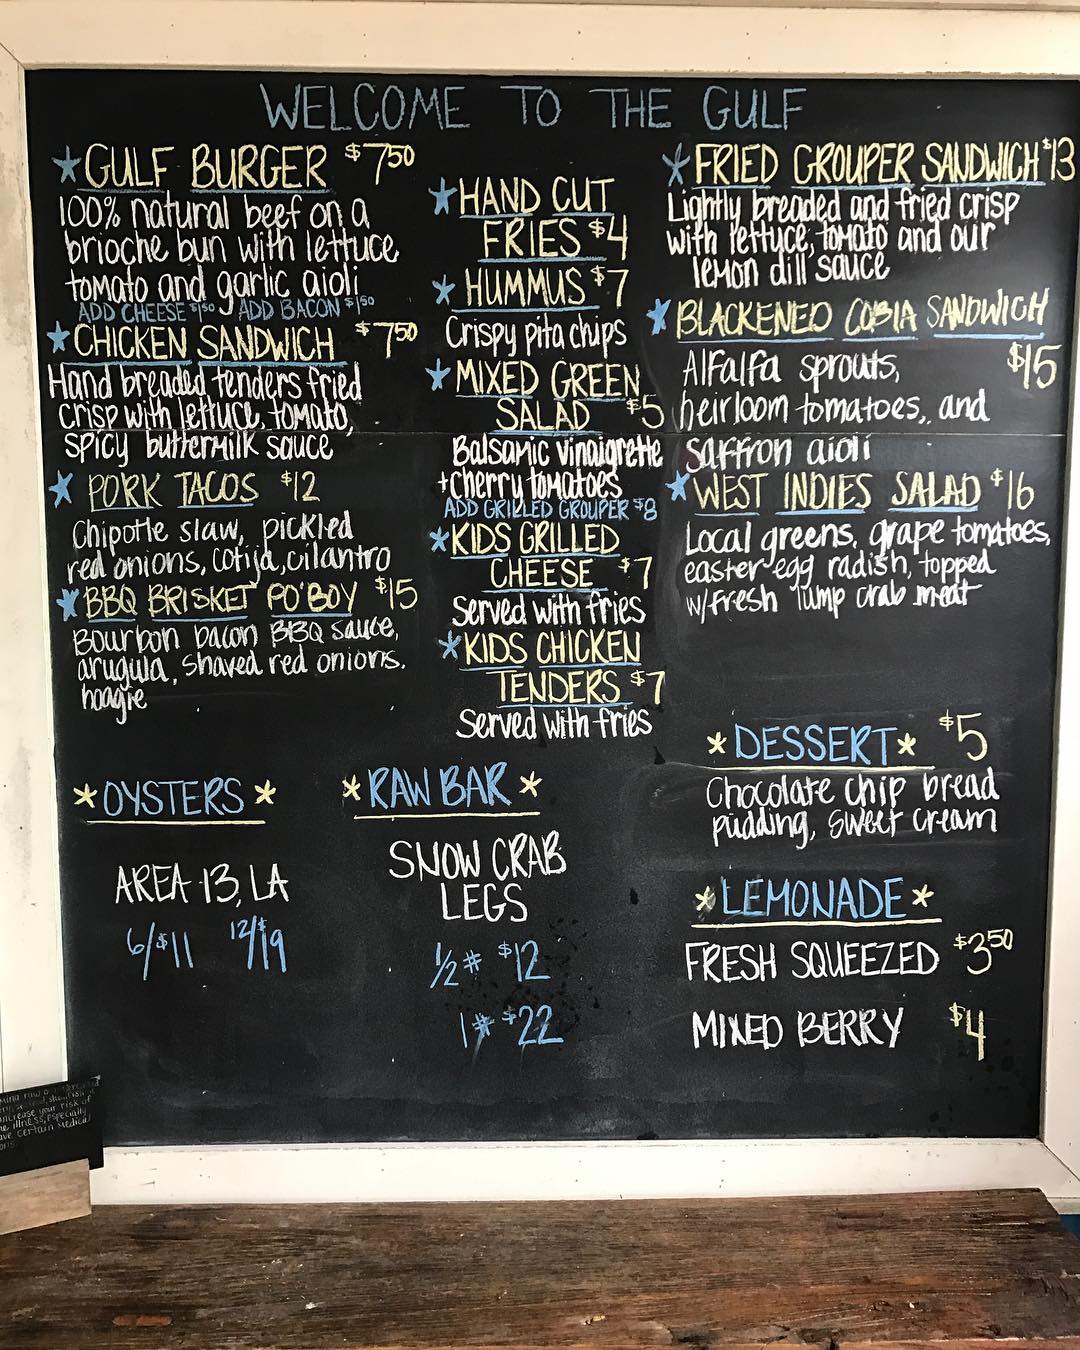 WELCOME TO THE GULF
★GULF BURGER $7⁵⁰
100% natural beef on a
brioche bun with lettuce
tomato and garlic aioli
ADD CHEESE $1⁵⁰ ADD BACON $1⁵⁰
★CHICKEN SANDWICH $7⁵⁰
Hand breaded tenders fried
crisp with lettuce, tomato,
spicy buttermilk sauce
★ PORK TACOS $12
Chipotle slaw, pickled
red onions, cotija, cilantro
★BBQ BRISKET PO'BOY $15
Bourbon bacon BBQ sauce,
arugula, shaved red onions,
hoagie
★HAND CUT
FRIES $4
★HUMMUS $7
Crispy pita chips
★MIXED GREEN
SALAD $5
Balsamic vinaigrette
+cherry tomatoes
ADD GRILLED GROUPER $8
★KIDS GRILLED
CHEESE $7
Served with fries
★KIDS CHICKEN
TENDERS $7
Served with fries
★FRIED GROUPER SANDWICH $13
Lightly breaded and fried crisp
with lettuce, tomato and our
lemon dill sauce
★BLACKENED COBIA SANDWICH
$15
Alfalfa sprouts,
heirloom tomatoes, and
saffron aioli
★WEST INDIES SALAD $16
Local greens, grape tomatoes,
easter egg radish, topped
w/fresh lump crab meat
*OYSTERS*
AREA 13, LA
6/$11 12/$19
*RAW BAR*
SNOW CRAB
LEGS
1/2# $12
1# $22
*DESSERT* $5
Chocolate chip bread
pudding, sweet cream
*LEMONADE*
FRESH SQUEEZED $3⁵⁰
MIXED BERRY $4
raw
increase your risk of
illness, especially
certain medical